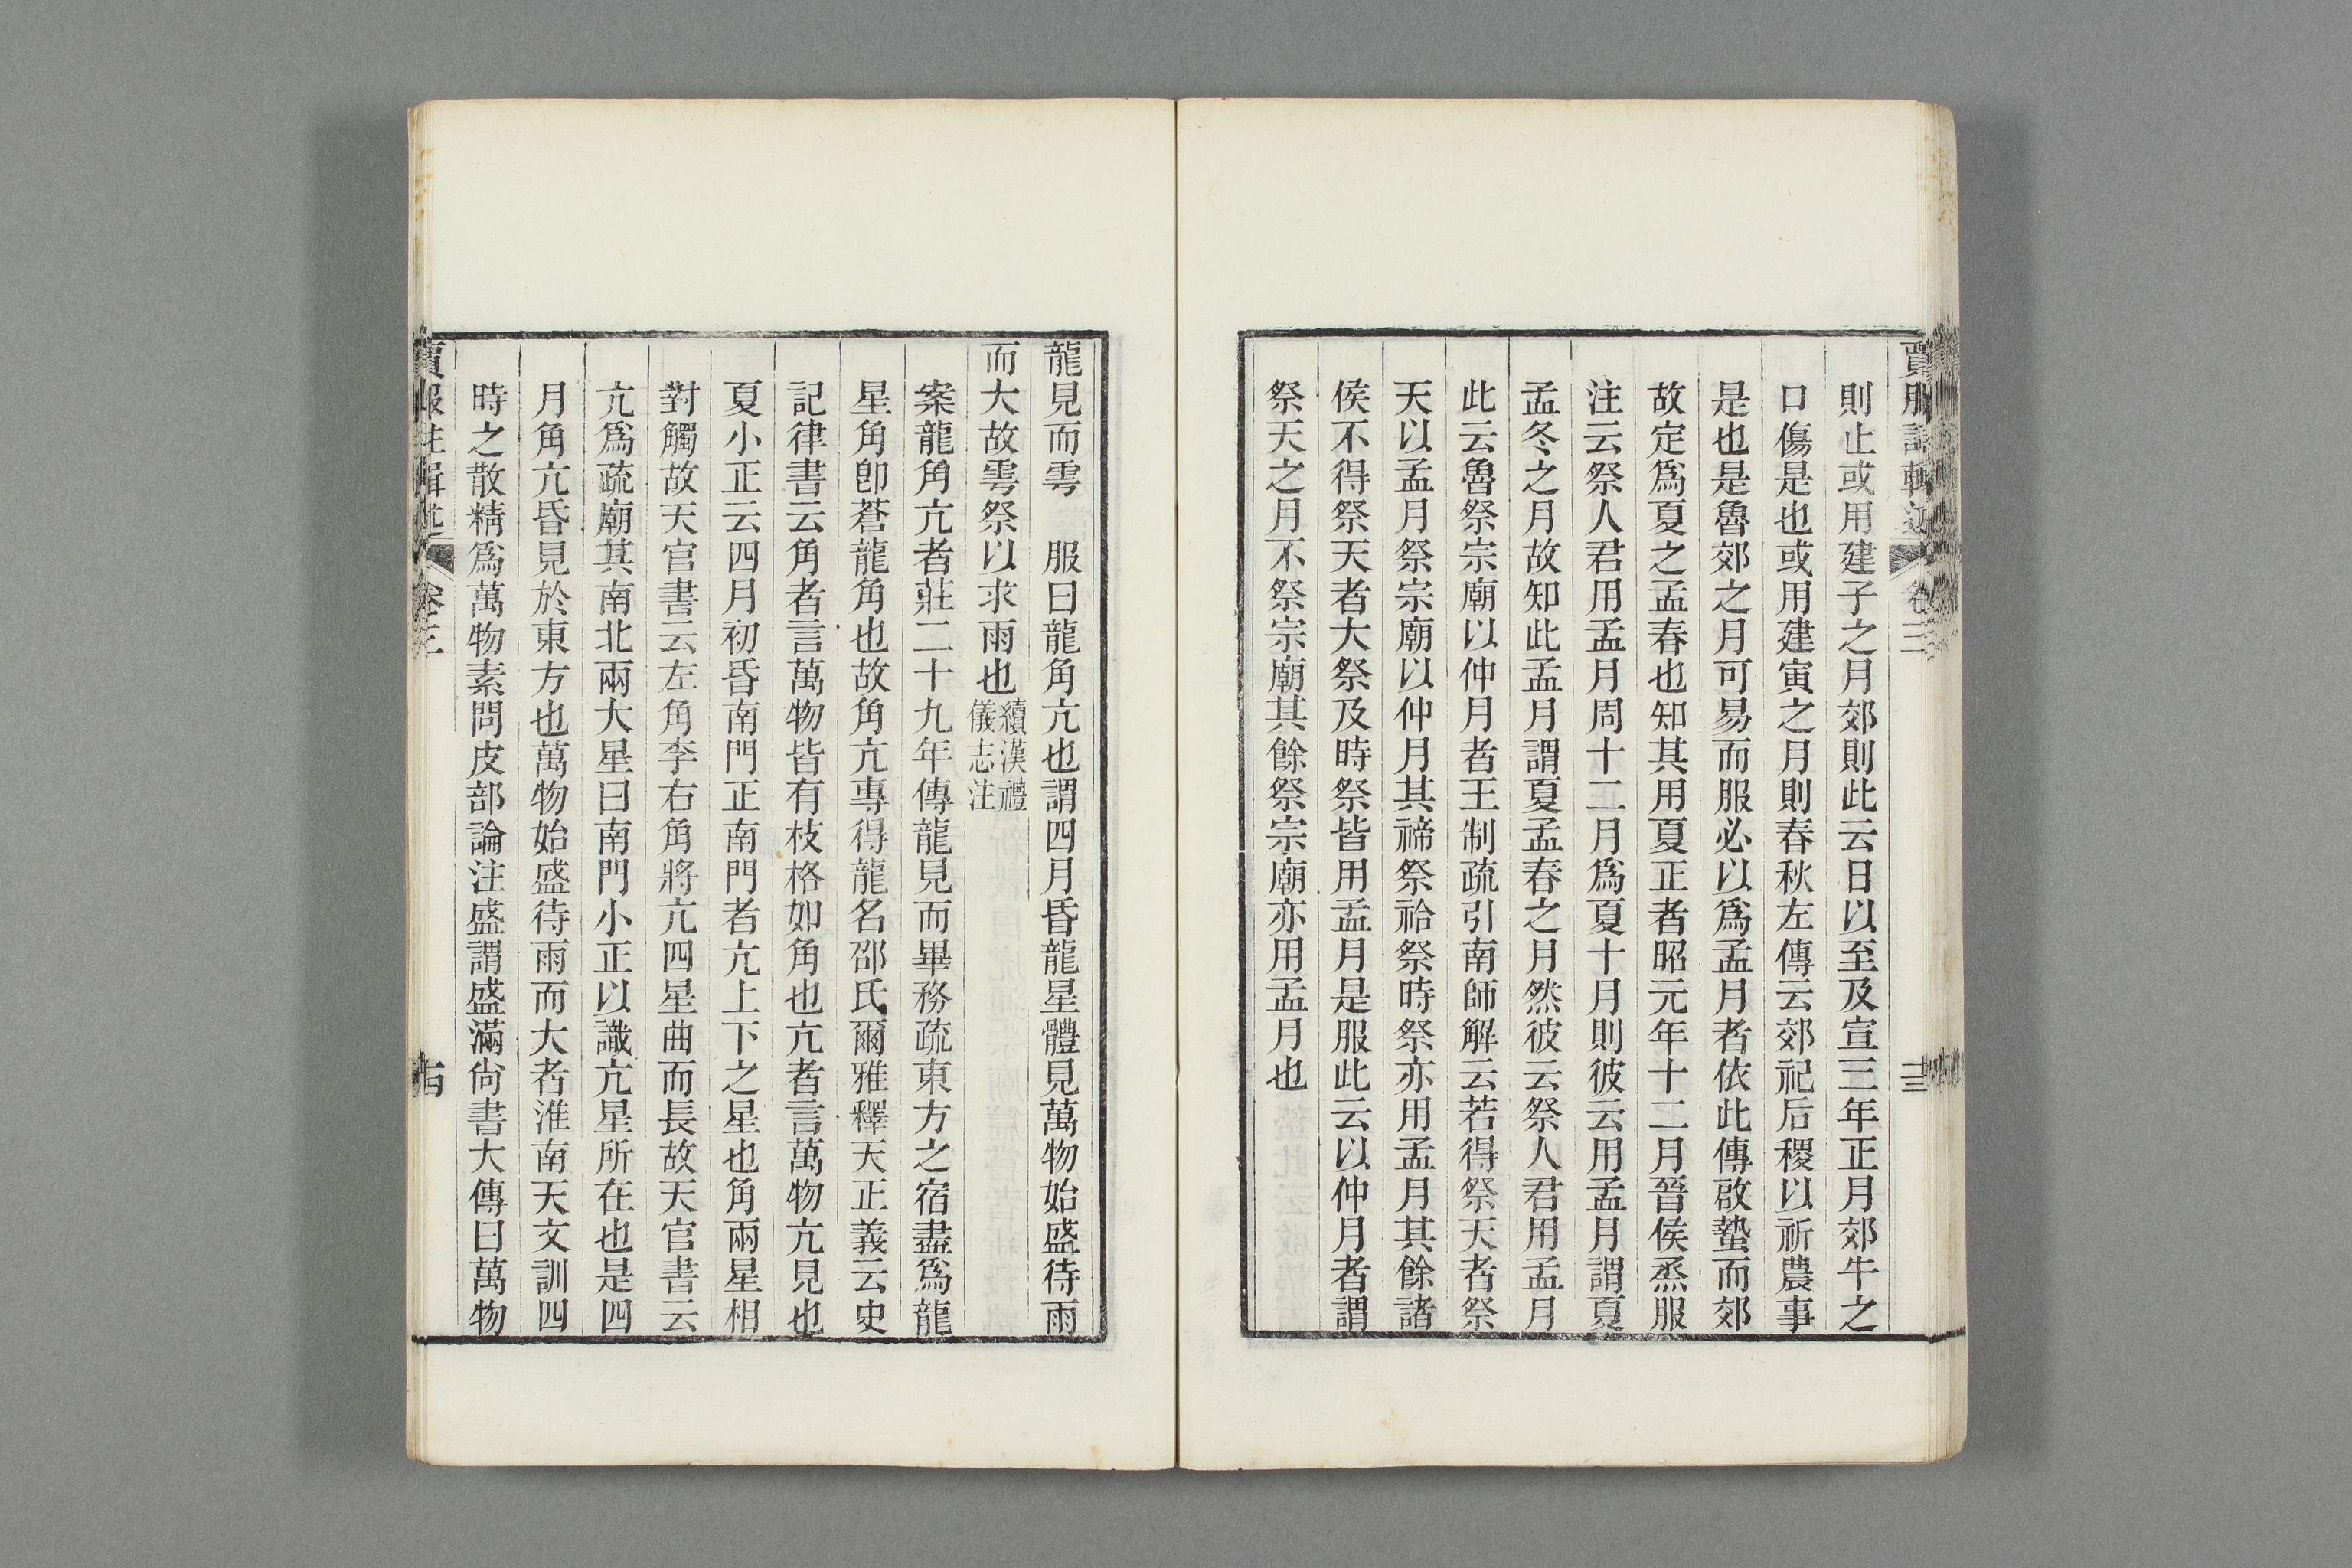 則止或用建子之月郊則此云日以至及宣三年正月郊牛之
口傷是也或用建寅之月則春秋左傳云郊祀后稷以祈農事
是也是魯郊之月可易而服必以為孟月者依此傳啟蟄而郊
故定為夏之孟春也知其用夏正者昭元年十二月晉侯烝服
注云祭人君用孟月周十二月為夏十月則彼云用孟月謂夏
孟冬之月故知此孟月謂夏孟春之月然彼云祭人君用孟月
此云魯祭宗廟以仲月者王制疏引南師解云若得祭天者祭
天以孟月祭宗廟以仲月其禘祭祫祭時祭亦用孟月其餘諸
侯不得祭天者大祭及時祭皆用孟月是服此云以仲月者謂
祭天之月不祭宗廟其餘祭宗廟亦用孟月也
龍見而雩　服曰龍角亢也謂四月昏龍星體見萬物始盛待雨
而大故雩祭以求雨也續漢禮
儀志注
案龍角亢者莊二十九年傳龍見而畢務疏東方之宿盡為龍
星角卽蒼龍角也故角亢專得龍名邵氏爾雅釋天正義云史
記律書云角者言萬物皆有枝格如角也亢者言萬物亢見也
夏小正云四月初昏南門正南門者亢上下之星也角兩星相
對觸故天官書云左角李右角將亢四星曲而長故天官書云
亢為疏廟其南北兩大星曰南門小正以識亢星所在也是四
月角亢昏見於東方也萬物始盛待雨而大者淮南天文訓四
時之散精為萬物素問皮部論注盛謂盛滿尙書大傳曰萬物
賈服注輯述
卷三
十四